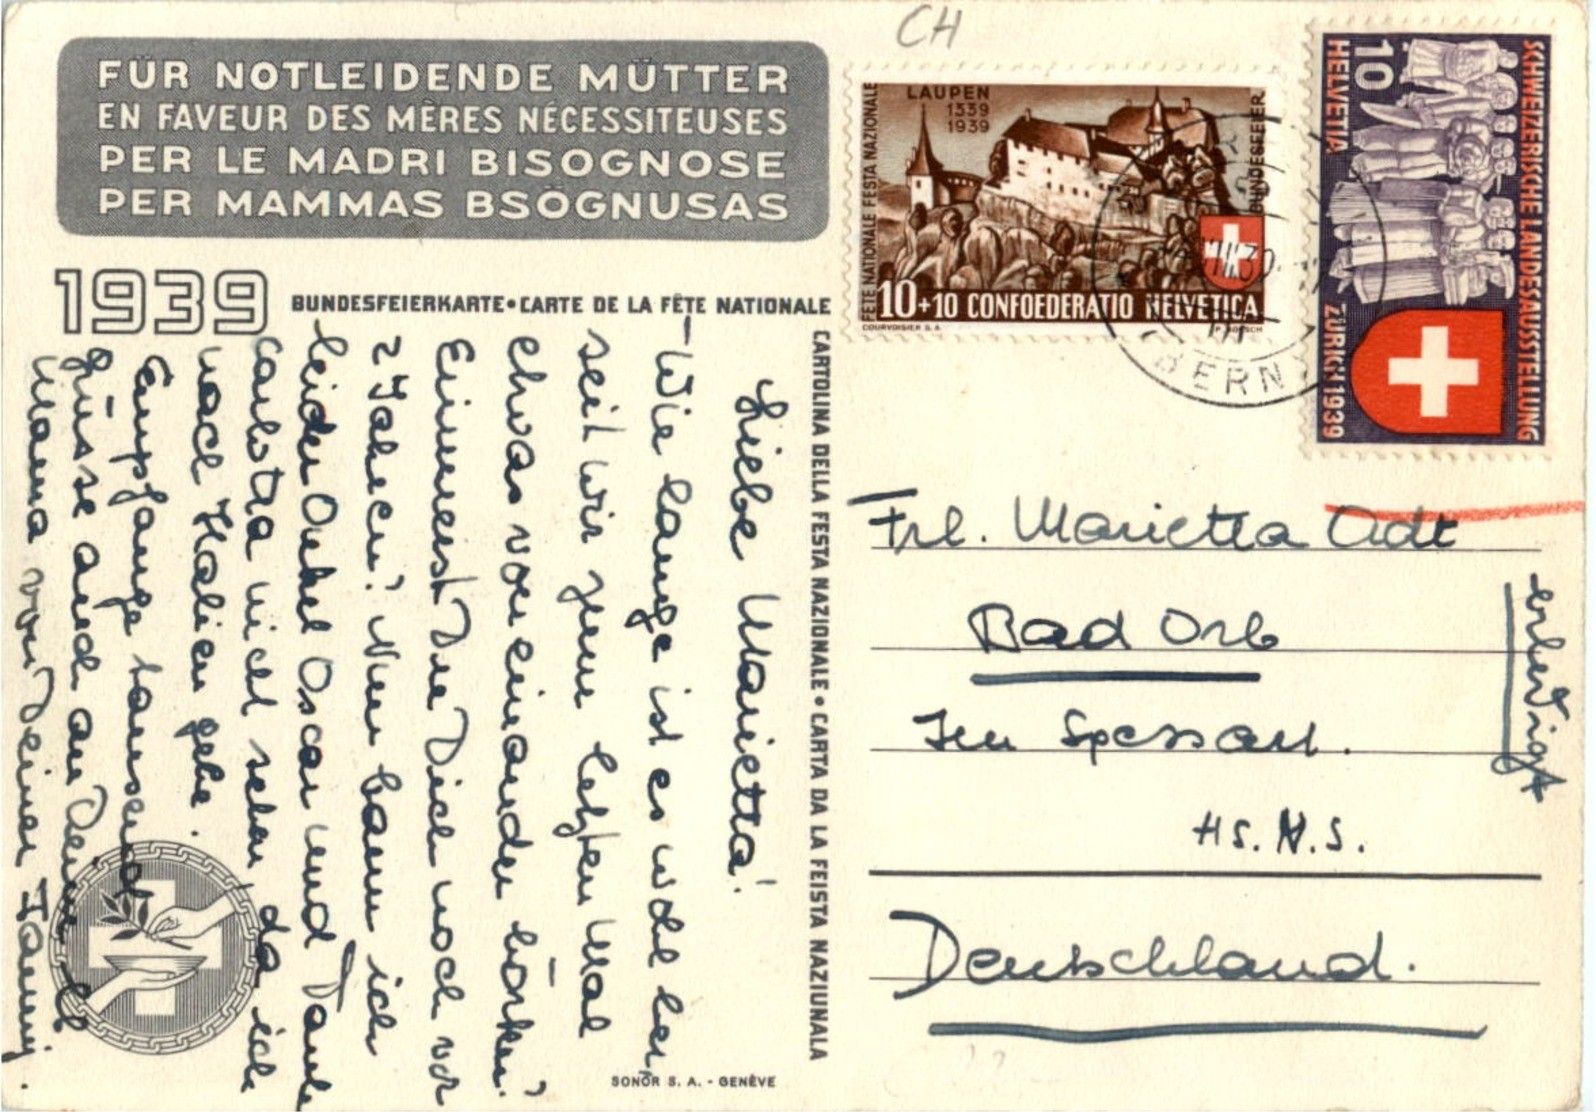 CH
FÜR NOTLEIDENDE MÜTTER
EN FAVEUR DES MÈRES NÉCESSITEUSES
PER LE MADRI BISOGNOSE
PER MAMMAS BSÖGNUSAS
1939
BUNDESFEIERKARTE • CARTE DE LA FÊTE NATIONALE
CARTOLINA DELLA FESTA NAZIONALE • CARTA DA LA FEISTA NAZIUNALA
Liebe Marietta!
– Wie lange ist es wohl her,
seit wir zum letzten Mal
etwas voneinander hörten!
Erinnerst Du Dich noch vor
2 Jahren? Nun kann ich
leider Onkel Oscar und Tante
nicht sehen da ich
nach Italien gehe.
Empfange tausend
Grüsse auch an Deine lb
Mama von Deiner
SONOR S. A. - GENÈVE
LAUPEN
1339
1939
FÊTE NATIONALE FESTA NAZIONALE
BUNDESFEIER
10+10 CONFOEDERATIO HELVETICA
COURVOISIER S. A.
SCHWEIZERISCHE LANDESAUSSTELLUNG
10
HELVETIA
ZÜRICH 1939
BERN
Frl. Marietta Adt
Bad Orb
Im Spessart.
HS. N.S.
Deutschland.
erledigt